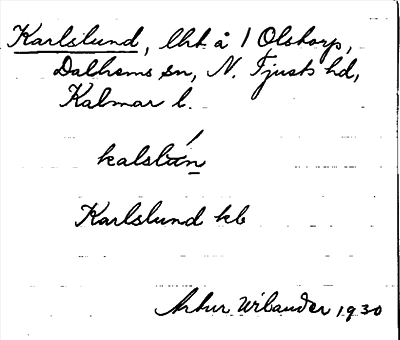 Karlslund, lht. å 1 Olstorp,
Dalhems sn, N. Tjusts hd,
Kalmar l.
kalslún
Karlslund kb
Artur Wilander 1930